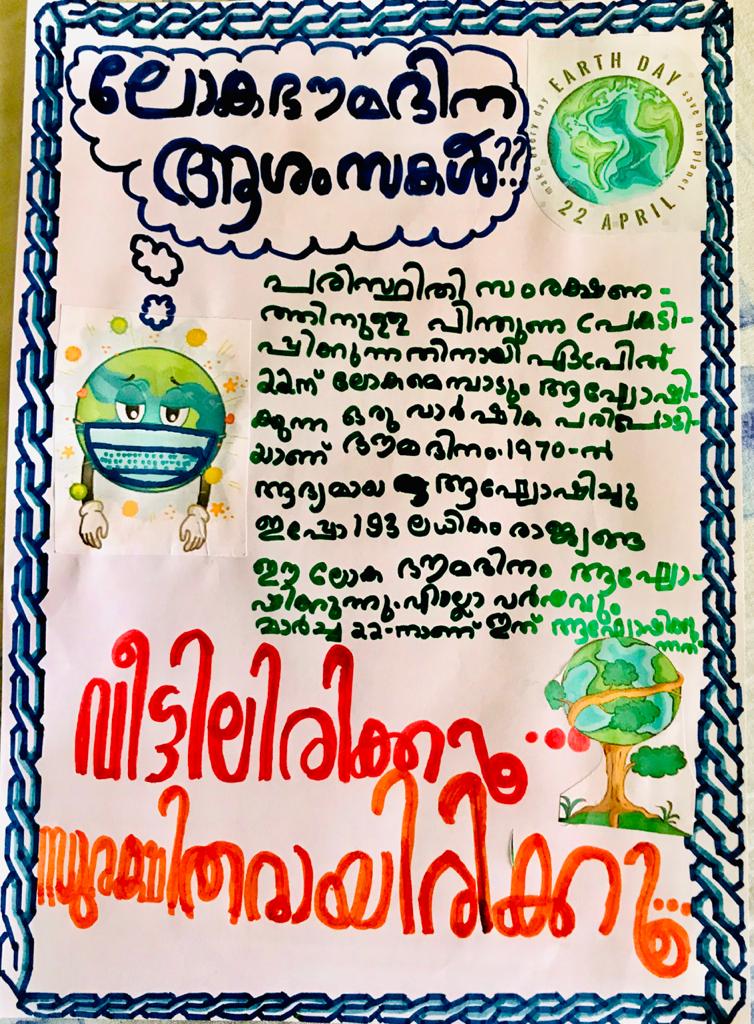 ലോകഭൗമദിന
ആശംസകൾ??
make every day EARTH DAY save our planet
22 APRIL
പരിസ്ഥിതി സംരക്ഷണ-
ത്തിനുള്ള പിന്തുണ പ്രകടി-
പ്പിക്കുന്നതിനായി ഏപ്രിൽ
22ന് ലോകമെമ്പാടും ആഘോഷി-
ക്കുന്ന ഒരു വാർഷിക പരിപാടി-
യാണ് ഭൗമദിനം.1970-ൽ
ആദ്യമായ ആഘോഷിച്ചു
ഇപ്പോ 193 ലധികം രാജ്യങ്ങ
ഈ ലോക ഭൗമദിനം ആഘോ-
ഷിക്കുന്നു.എല്ലാ വർഷവും
മാർച്ച 22-നാണ് ഇത് ആഘോഷിക്കു
ന്നത്
വീട്ടിലിരിക്കൂ...
സുരക്ഷിതരായിരിക്കൂ...